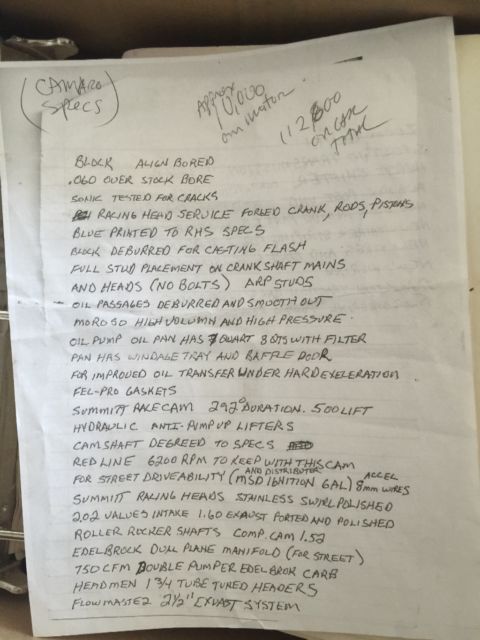 (CAMARO
Specs)
Approx
10,000
on motor
112,600
ON CAR
TOTAL
BLOCK ALIGN BORED
.060 OVER STOCK BORE
SONIC TESTED FOR CRACKS
RACING HEAD SERVICE FORGED CRANK, RODS, PISTONS
BLUE PRINTED TO RHS SPECS
BLOCK DEBURRED FOR CASTING FLASH
FULL STUD PLACEMENT ON CRANKSHAFT MAINS
AND HEADS (NO BOLTS) ARP STUDS
OIL PASSAGES DEBURRED AND SMOOTH OUT
MOROSO HIGH VOLUMN AND HIGH PRESSURE
OIL PUMP OIL PAN HAS 7 QUART 8 QTS WITH FILTER
PAN HAS WINDAGE TRAY AND BAFFLE DOOR
FOR IMPROVED OIL TRANSFER UNDER HARD EXELERATION
FEL-PRO GASKETS
SUMMITT RACE CAM 292° DURATION .500 LIFT
HYDRAULIC ANTI-PUMP UP LIFTERS
CAMSHAFT DEGREED TO SPECS
RED LINE 6200 RPM TO KEEP WITH THIS CAM
FOR STREET DRIVEABILITY (MSD IGNITION 6AL) AND DISTRIBUTER ACCEL 8mm WIRES
SUMMITT RACING HEADS STAINLESS SWIRL POLISHED
2.02 VALUES INTAKE 1.60 EXAUST PORTED AND POLISHED
ROLLER ROCKER SHAFTS COMP. CAM 1.52
EDELBROCK DUAL PLANE MANIFOLD (FOR STREET)
750 CFM DOUBLE PUMPER EDELBROK CARB
HEADMEN 1 3/4 TUBE TUNED HEADERS
FLOWMASTER 2 1/2" EXUAST SYSTEM